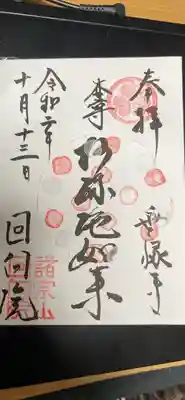 奉拝 無縁寺
本尊 阿弥陀如来
令和二年
十月十三日
回向院
諸宗山